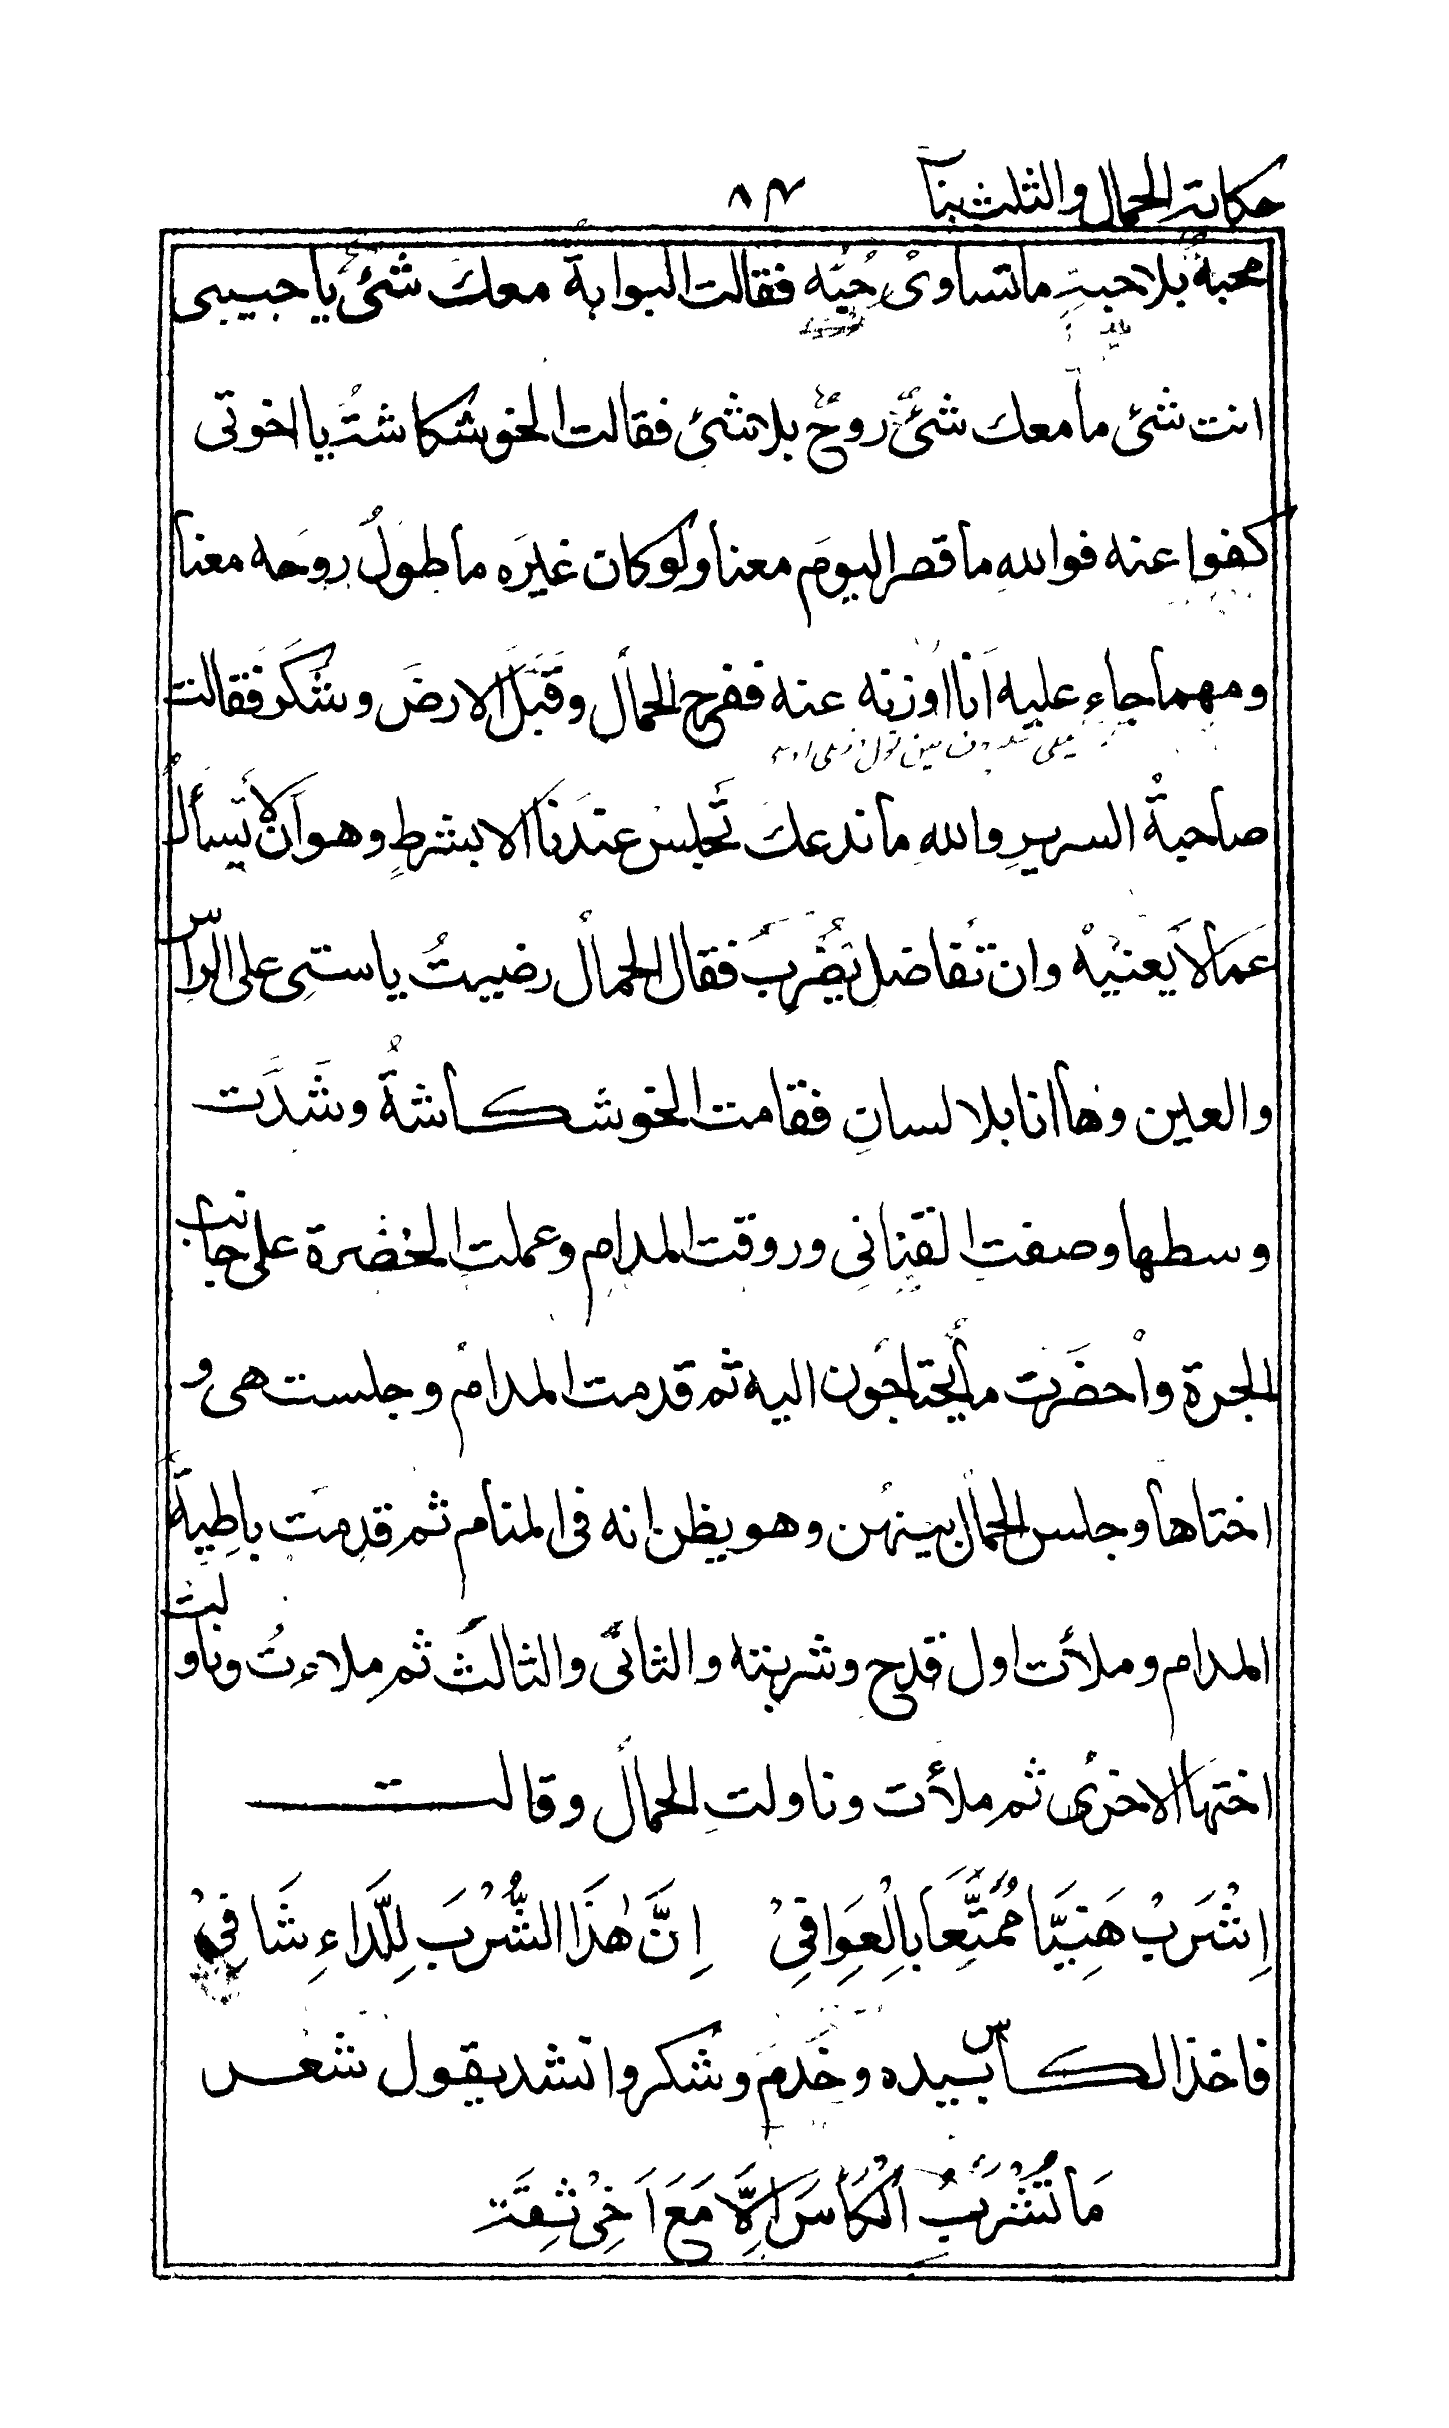 حكاية الحمال والثلث بنات ٨٣
محبة بلا حبةٍ ما تساوى حُبّه فقالت البوابة معك شئ يا حبيبى
انت شئ ما معك شئ روحْ بلا شئ فقالت الخوشكاشةُ يا اخوتى
كفوا عنه فوا للهِ ما قصر اليوم معنا ولو كان غيرَه ما طولُ روحَه معنا
ومهما جاءِ عليه اَنا اوزنه عنه ففرح الحمالْ وقَبَّل الارضَ وشكَر فقالت
صاحبةُ السريرِ واللهِ ما ندعك تَجلسْ عندَنا الا بشرطٍ وهو اَن لاَ تَسأَلُ
عَما لاَ يعنيهْ وان تفاضل تُضْرَبُ فقال الحمالْ رضيتُ يا ستى على الراس
والعين وها انا بلا لسانٍ فقامت الخوشكاشةُ وشَدَّت
وسطها وصفتِ القنانى وروقت المدام وعملتِ الخُضرة على جانب
الجرة واحضَرت ما يحتاجُون اليه ثم قدمت المدام وجلست هى و
اختاها وجلس الحمال بينهن وهو يظن انه فى المنام ثم قدمت باطِيةَ
المدام وملأت اول قدح وشربته والثانى والثالثْ ثم ملاءتْ وناولت
اختها الاخرٰى ثم ملأت وناولتِ الحمالْ وقالت
اِشْرَبْ هَنِيَّا مُمَتَّعَا بِالْعَوَافِىْ اِنَّ هٰذَا الشُّرْبَ لِلدَّاءِ شَافِىْ
فاخذ الكأس بيده وخَدم وشكر وانشد يقول شعر
مَا تُشْرَبُ الْكَأسَ اِلاَّ مَعَ اَخِىْ ثِقَةٍ